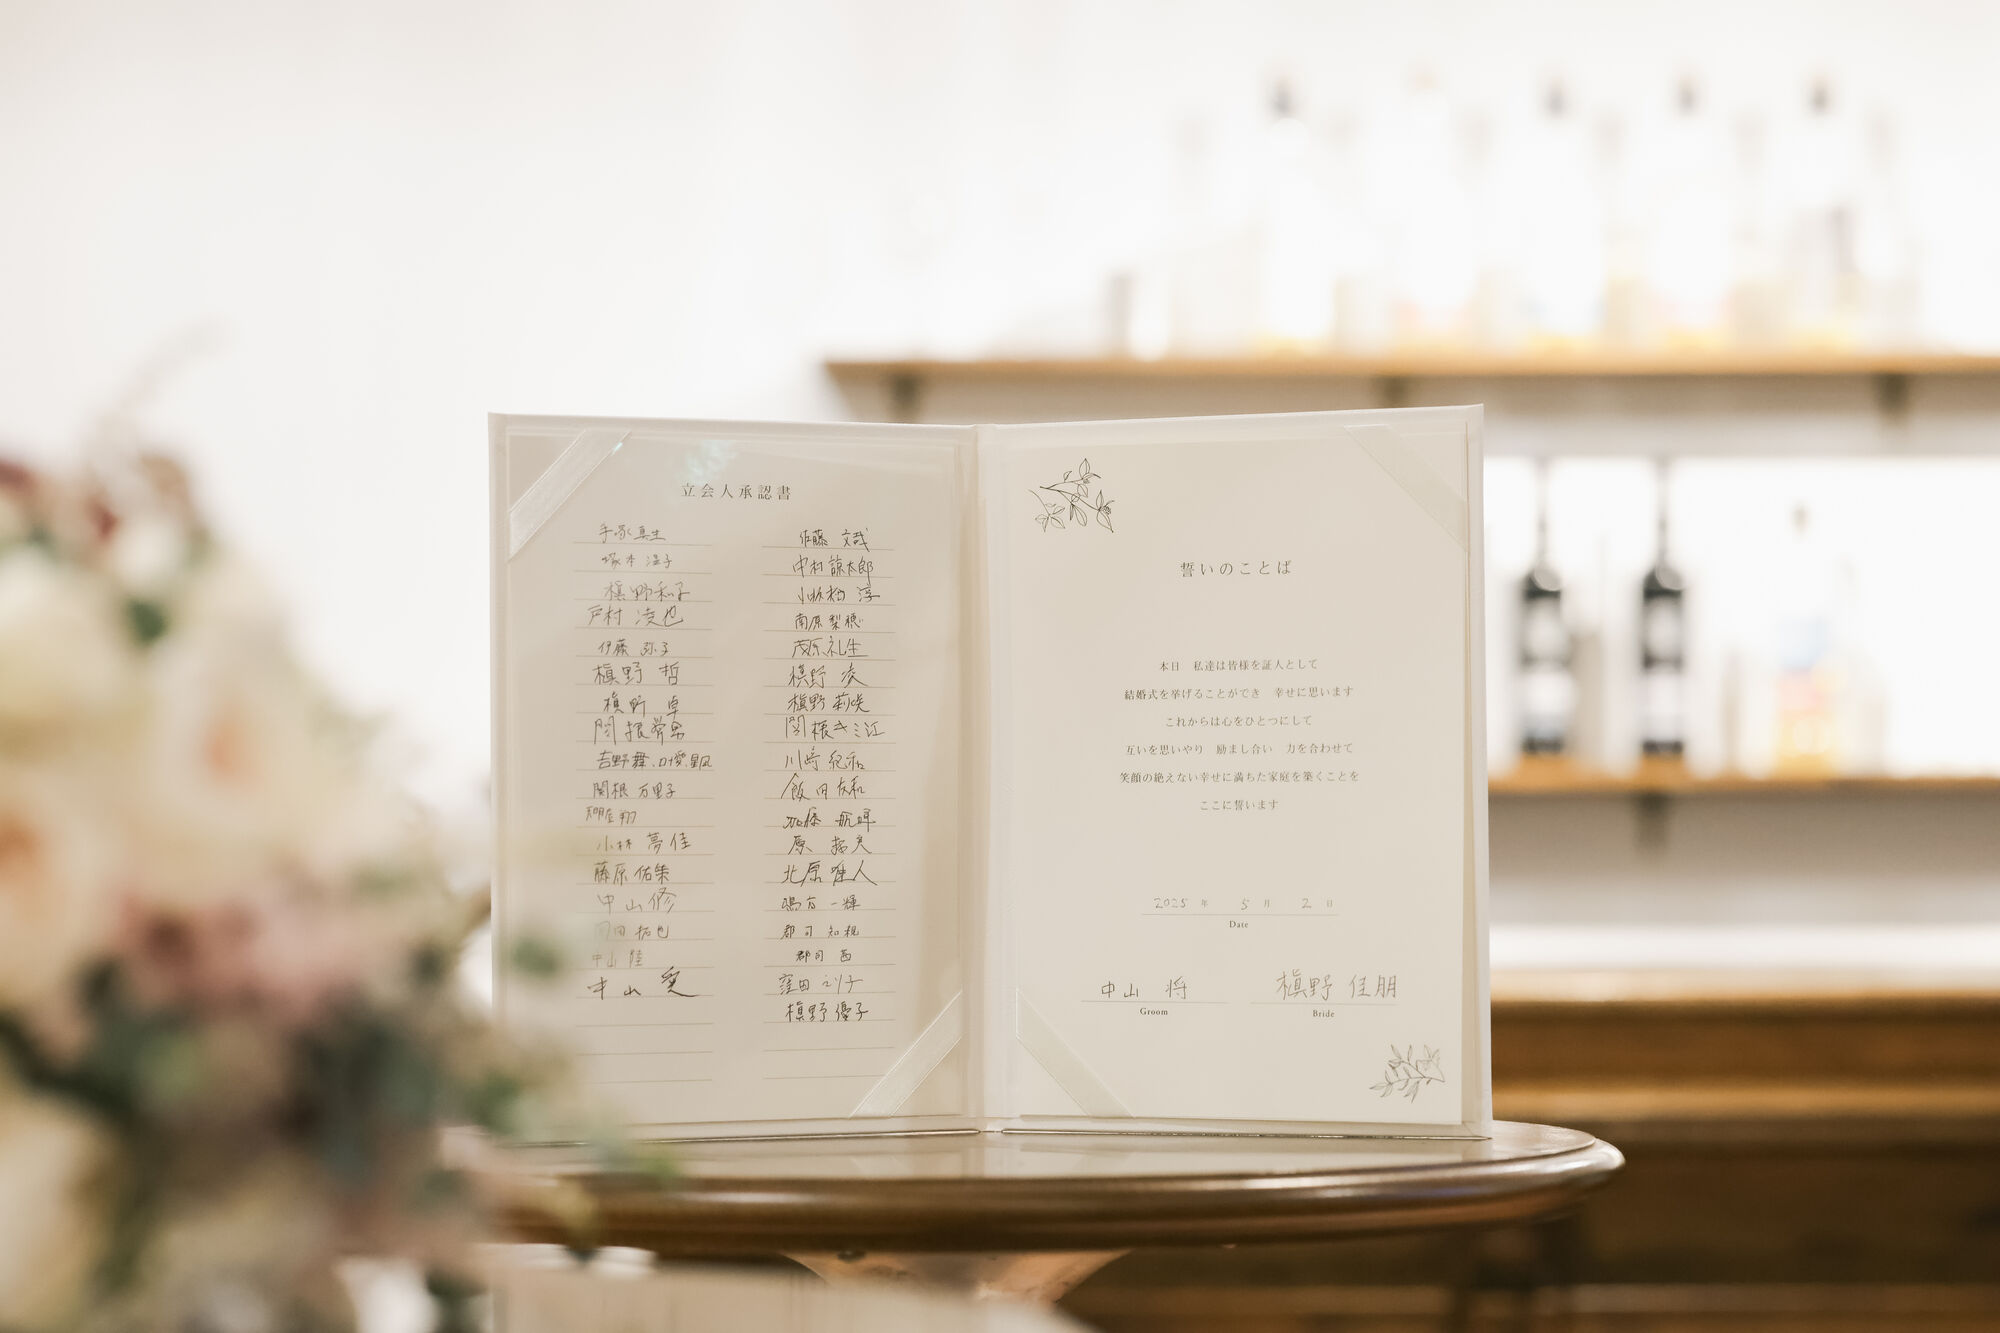 立会人承認書
手塚真生
塚本 温子
槇野和子
戸村 凌也
伊藤 弥子
槇野 哲
槇野 卓
関根
吉野舞、叶愛、星凪
関根 万里子
翔
小林 夢佳
藤原 佑策
中山 修
岡田 拓也
中山 陸
中山 愛
佐藤 文哉
中村 諒太郎
小林 淳
南原 梨穂
茂原 礼生
槇野 凌
槇野 莉咲
関根 き三江
川﨑 紀和
飯田 友和
加藤 航暉
原 拓夫
北原 唯人
鳴方 一輝
郡司 知規
郡司 茜
窪田 えり子
槇野 優子
誓いのことば
本日 私達は皆様を証人として
結婚式を挙げることができ 幸せに思います
これからは心をひとつにして
互いを思いやり 励まし合い 力を合わせて
笑顔の絶えない幸せに満ちた家庭を築くことを
ここに誓います
2025 年 5 月 2 日
Date
中山 将 槇野 佳朋
Groom Bride